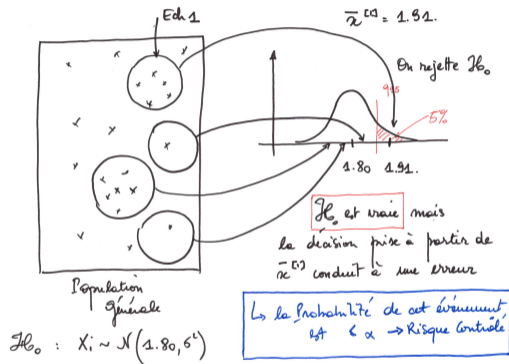 Ech 1
x̄⁽¹⁾ = 1.91.
On rejette H₀
q95
5%
1.80 1.91.
H₀ est vraie mais
la décision prise à partir de
x̄⁽¹⁾ conduit à une erreur
Population
Générale
↳ la Probabilité de cet événement
est < α → Risque Contrôlé
H₀ : Xi ~ N(1.80, σ²)